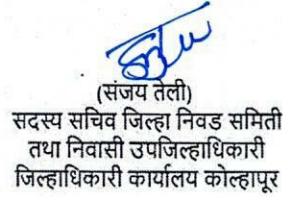 (संजय तेली)
सदस्य सचिव जिल्हा निवड समिती
तथा निवासी उपजिल्हाधिकारी
जिल्हाधिकारी कार्यालय कोल्हापूर